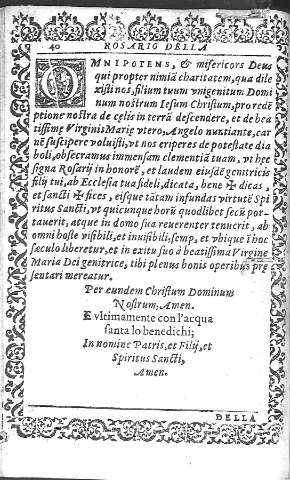 40 ROSARIO DELLA
OMNIPOTENS, & misericors Deus
qui propter nimiā charitatem, qua dile
xisti nos, filium tuum vnigenitum Domi
num nostrum Iesum Christum, pro redē
ptione nostra de cęlis in terrā descendere, et de bea
tissimę Virginis Marię vtero, Angelo nuntiante, car
nē suscipere voluisti, vt nos eriperes de potestate dia
boli, obsecramus immensam clementiā tuam, vt hęc
signa Rosarij in honorē, et laudem eiusdē genitricis
filij tui, ab Ecclesia tua fideli, dicata, bene ✠ dicas,
et sancti ✠ fices, eisque tātam infundas virtutē Spi
ritus Sancti, vt quicunque horū quodlibet secū por-
tauerit, atque in domo sua reuerenter tenuerit, ab
omni hoste visibili, et inuisibili, semp, et vbique ī hoc
sæculo liberetur, et in exitu suo à beatissima Virgine
Maria Dei genitrice, tibi plenus bonis operibus pre
sentari mereatur.
Per eundem Christum Dominum
Nostrum. Amen.
E vltimamente con l'acqua
santa lo benedichi;
In nomine Patris, et Filij, et
Spiritus Sancti,
Amen.
DELLA